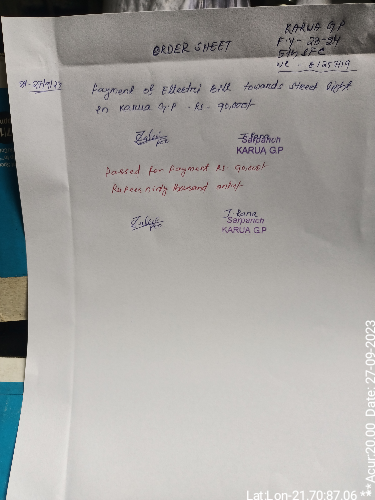 ORDER SHEET
KARUA G.P
F.Y- 23-24
5th CFC
Payment of Electric Bill towards street light
in Karua G.P - Rs - 90,000/-
Sarpanch
KARUA G.P
Passed for payment Rs 90,000/-
Rupees ninty thousand only
J Rana
Sarpanch
KARUA G.P
Lat:Lon-21.70:87.06 **Acur:20.00 Date: 27-09-2023